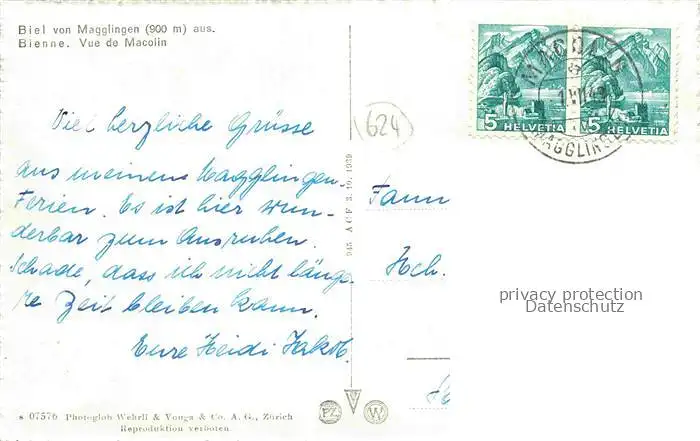 Biel von Magglingen (900 m) aus.
Bienne. Vue de Macolin
5 HELVETIA
5 HELVETIA
MAGGLINGEN
624
Viel herzliche Grüsse
aus meinen Magglingen-
Ferien. Es ist hier wun-
derbar zum Ausruhen.
Schade, dass ich nicht länge-
re Zeit bleiben kann.
Eure Heidi Jakob.
945 ACF 3. 10. 1939
Fam
Hch.
privacy protection
Datenschutz
s 07576 Photoglob Wehrli & Vouga & Co. A. G., Zürich
Reproduktion verboten.
PZ
W